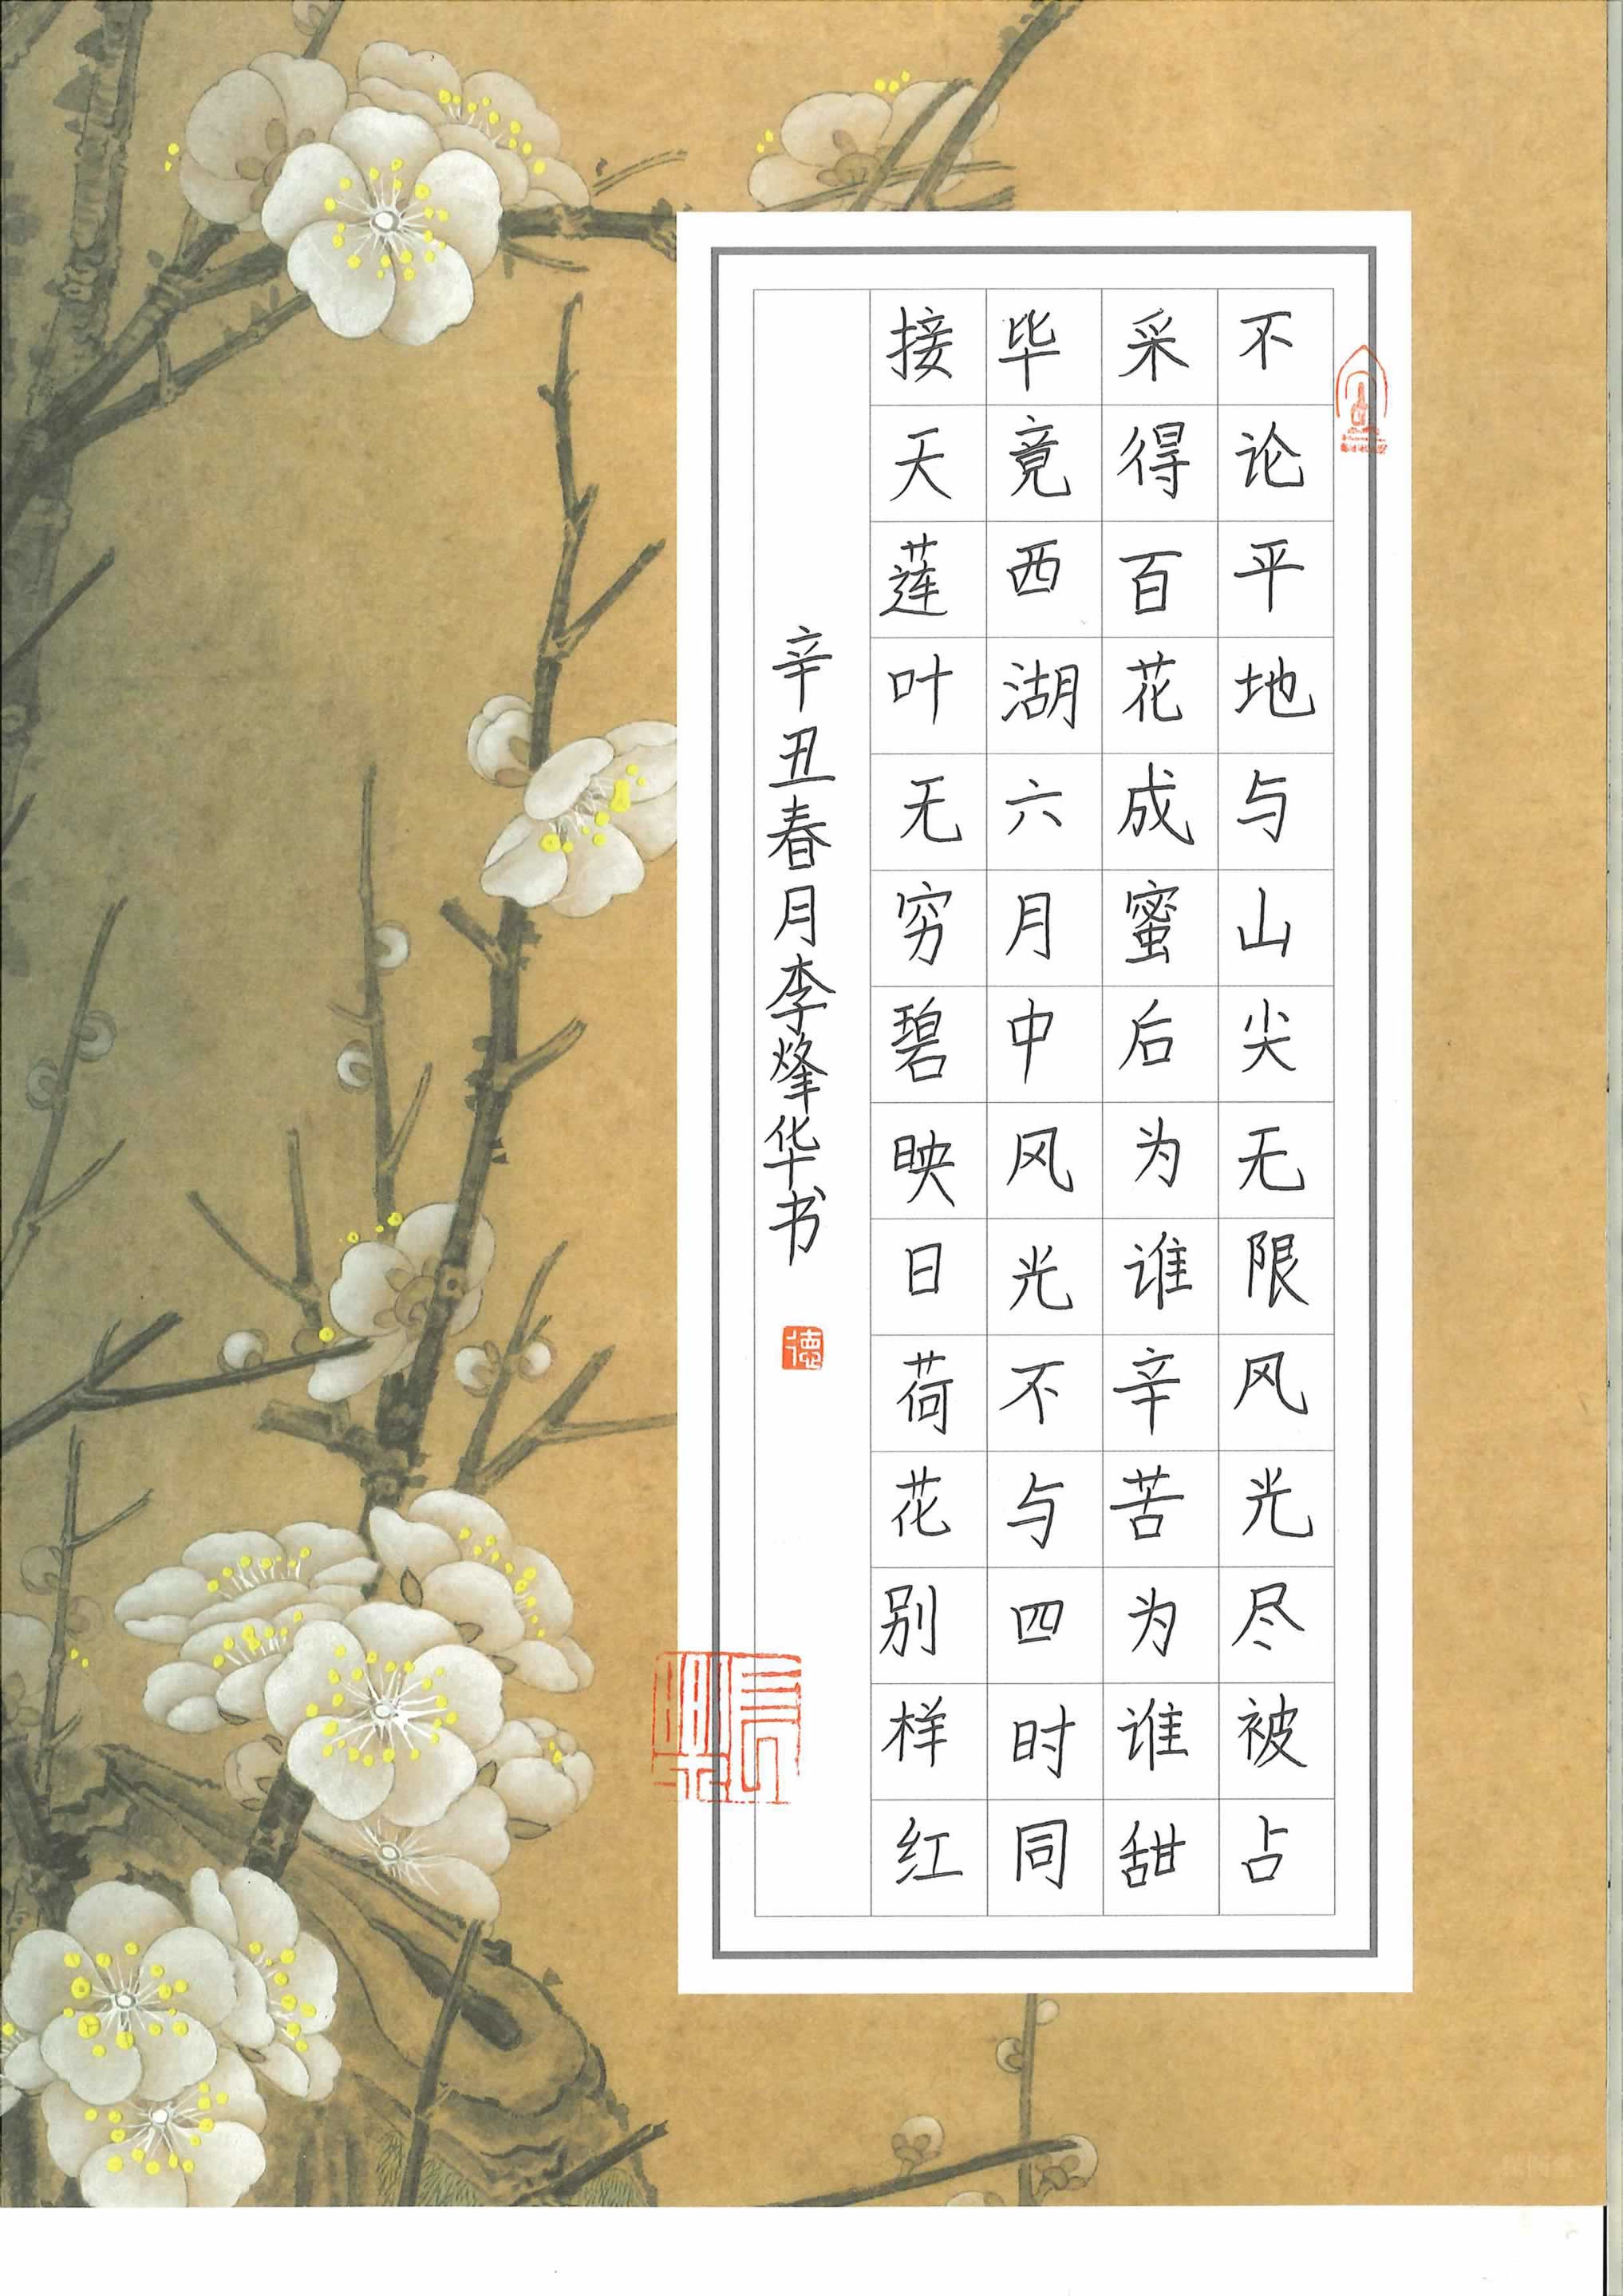 不论平地与山尖无限风光尽被占
采得百花成蜜后为谁辛苦为谁甜
毕竟西湖六月中风光不与四时同
接天莲叶无穷碧映日荷花别样红
辛丑春月李烽华书
德